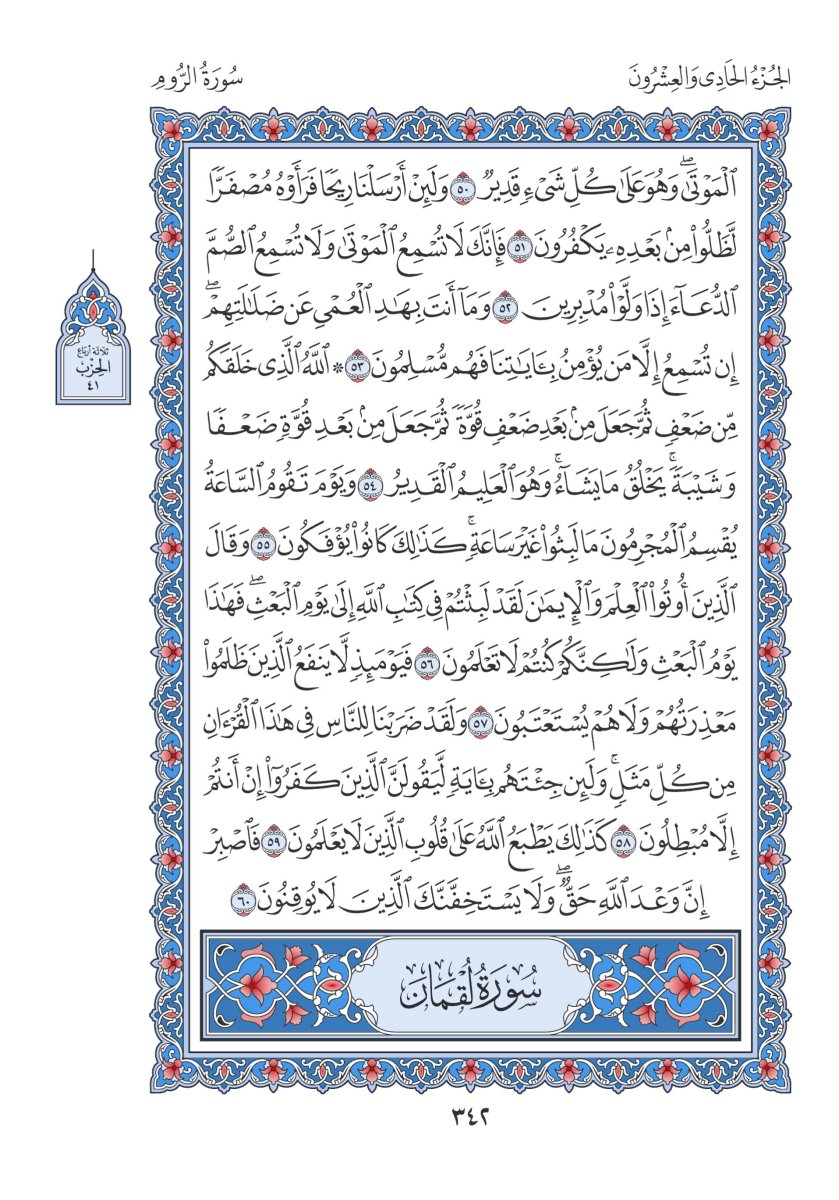 الجُزْءُ الحَادِى وَالعِشْرُونَ
سُورَةُ الرُّومِ
ٱلْمَوْتَىٰۖ وَهُوَ عَلَىٰ كُلِّ شَىْءٖ قَدِيرٞ ٥٠ وَلَئِنْ أَرْسَلْنَا رِيحٗا فَرَأَوْهُ مُصْفَرّٗا
لَّظَلُّواْ مِنۢ بَعْدِهِۦ يَكْفُرُونَ ٥١ فَإِنَّكَ لَا تُسْمِعُ ٱلْمَوْتَىٰ وَلَا تُسْمِعُ ٱلصُّمَّ
ٱلدُّعَآءَ إِذَا وَلَّوْاْ مُدْبِرِينَ ٥٢ وَمَآ أَنتَ بِهَٰدِ ٱلْعُمْىِ عَن ضَلَٰلَتِهِمْۖ
إِن تُسْمِعُ إِلَّا مَن يُؤْمِنُ بِـَٔايَٰتِنَا فَهُم مُّسْلِمُونَ ٥٣ ۞ ٱللَّهُ ٱلَّذِى خَلَقَكُم
مِّن ضَعْفٖ ثُمَّ جَعَلَ مِنۢ بَعْدِ ضَعْفٖ قُوَّةٗ ثُمَّ جَعَلَ مِنۢ بَعْدِ قُوَّةٖ ضَعْفٗا
وَشَيْبَةٗۚ يَخْلُقُ مَا يَشَآءُۚ وَهُوَ ٱلْعَلِيمُ ٱلْقَدِيرُ ٥٤ وَيَوْمَ تَقُومُ ٱلسَّاعَةُ
يُقْسِمُ ٱلْمُجْرِمُونَ مَا لَبِثُواْ غَيْرَ سَاعَةٖۚ كَذَٰلِكَ كَانُواْ يُؤْفَكُونَ ٥٥ وَقَالَ
ٱلَّذِينَ أُوتُواْ ٱلْعِلْمَ وَٱلْإِيمَٰنَ لَقَدْ لَبِثْتُمْ فِى كِتَٰبِ ٱللَّهِ إِلَىٰ يَوْمِ ٱلْبَعْثِۖ فَهَٰذَا
يَوْمُ ٱلْبَعْثِ وَلَٰكِنَّكُمْ كُنتُمْ لَا تَعْلَمُونَ ٥٦ فَيَوْمَئِذٖ لَّا يَنفَعُ ٱلَّذِينَ ظَلَمُواْ
مَعْذِرَتُهُمْ وَلَا هُمْ يُسْتَعْتَبُونَ ٥٧ وَلَقَدْ ضَرَبْنَا لِلنَّاسِ فِى هَٰذَا ٱلْقُرْءَانِ
مِن كُلِّ مَثَلٖۚ وَلَئِن جِئْتَهُم بِـَٔايَةٖ لَّيَقُولَنَّ ٱلَّذِينَ كَفَرُوٓاْ إِنْ أَنتُمْ
إِلَّا مُبْطِلُونَ ٥٨ كَذَٰلِكَ يَطْبَعُ ٱللَّهُ عَلَىٰ قُلُوبِ ٱلَّذِينَ لَا يَعْلَمُونَ ٥٩ فَٱصْبِرْ
إِنَّ وَعْدَ ٱللَّهِ حَقّٞۖ وَلَا يَسْتَخِفَّنَّكَ ٱلَّذِينَ لَا يُوقِنُونَ ٦٠
سُورَةُ لُقْمَانَ
ثلاثة أرباع
الحِزْب
٤١
٣٤٢